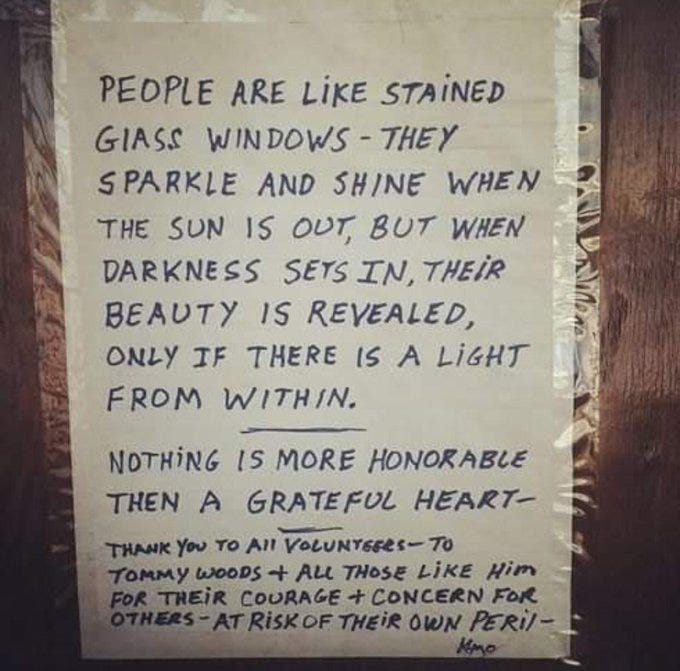 PEOPLE ARE LiKE STAiNED
GlASS WINDOWS - THEY
SPARKLE AND SHINE WHEN
THE SUN IS OUT, BUT WHEN
DARKNESS SETS IN, THEiR
BEAUTY IS REVEALED,
ONLY IF THERE IS A LiGHT
FROM WITHIN.
NOTHiNG IS MORE HONORABLE
THEN A GRATEFUL HEART-
THANK YOU TO All VOLUNTEERS- TO
TOMMY WOODS + ALL THOSE LiKE Him
FOR THEiR COURAGE + CONCERN FOR
OTHERS - AT RiSK OF THEiR OWN PERil -